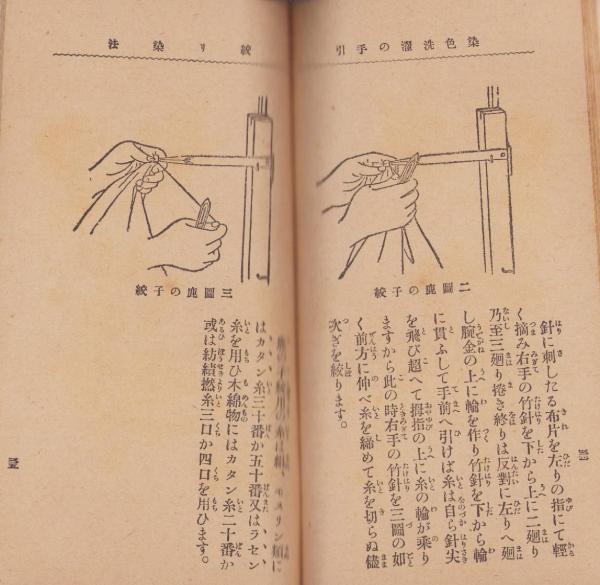 引手の濯洗色染
二圖鹿の子絞
針に刺したる布片を左りの指にて輕
く摘み右手の竹針を下から上に二廻り
乃至三廻り捲き終りは反對に左りへ廻
し腕金の上に輪を作り竹針を下から輪
に貫ふして手前へ引けば糸は自ら針尖
を飛び超へて拇指の上に糸の輪が乘り
ますから此の時右手の竹針を三圖の如
く前方に伸べ糸を締めて糸を切らぬ儘
次ぎを絞ります。
法染り絞
三圖鹿の子絞
はカタン糸三十番か五十番又はラセン
糸を用ひ木綿物にはカタン糸二十番か
或は紡績撚糸三口か四口を用ひます。